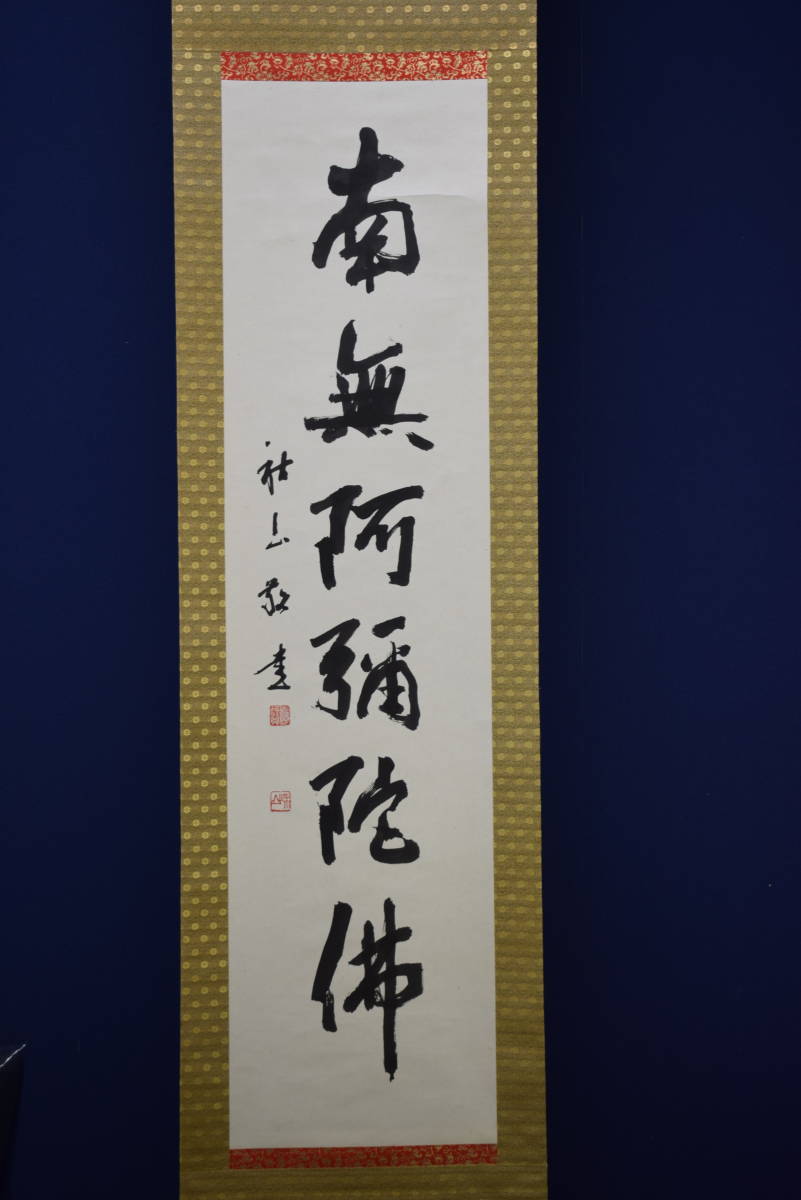 南無阿彌陀佛
山敬書